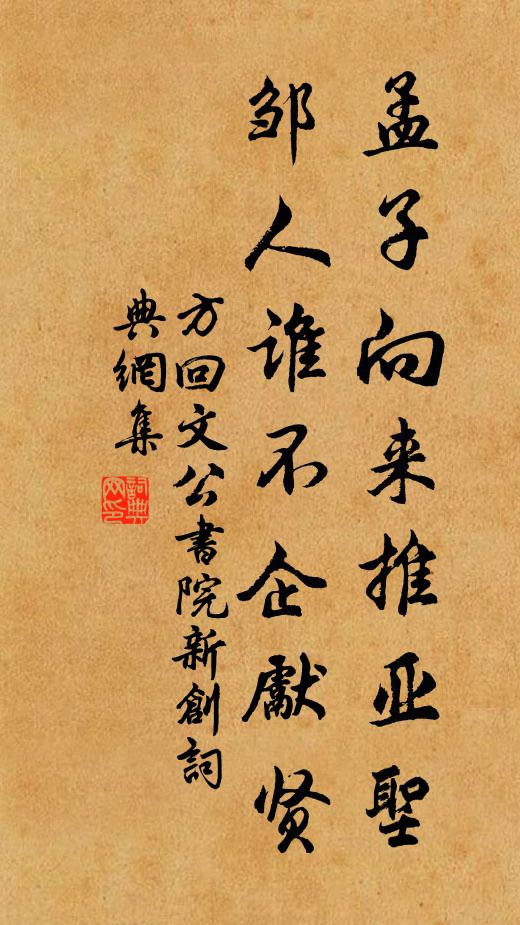 孟子向来推亚聖
邹人谁不企獻贤
方回文公書院新創詞
典網集
詞典网印